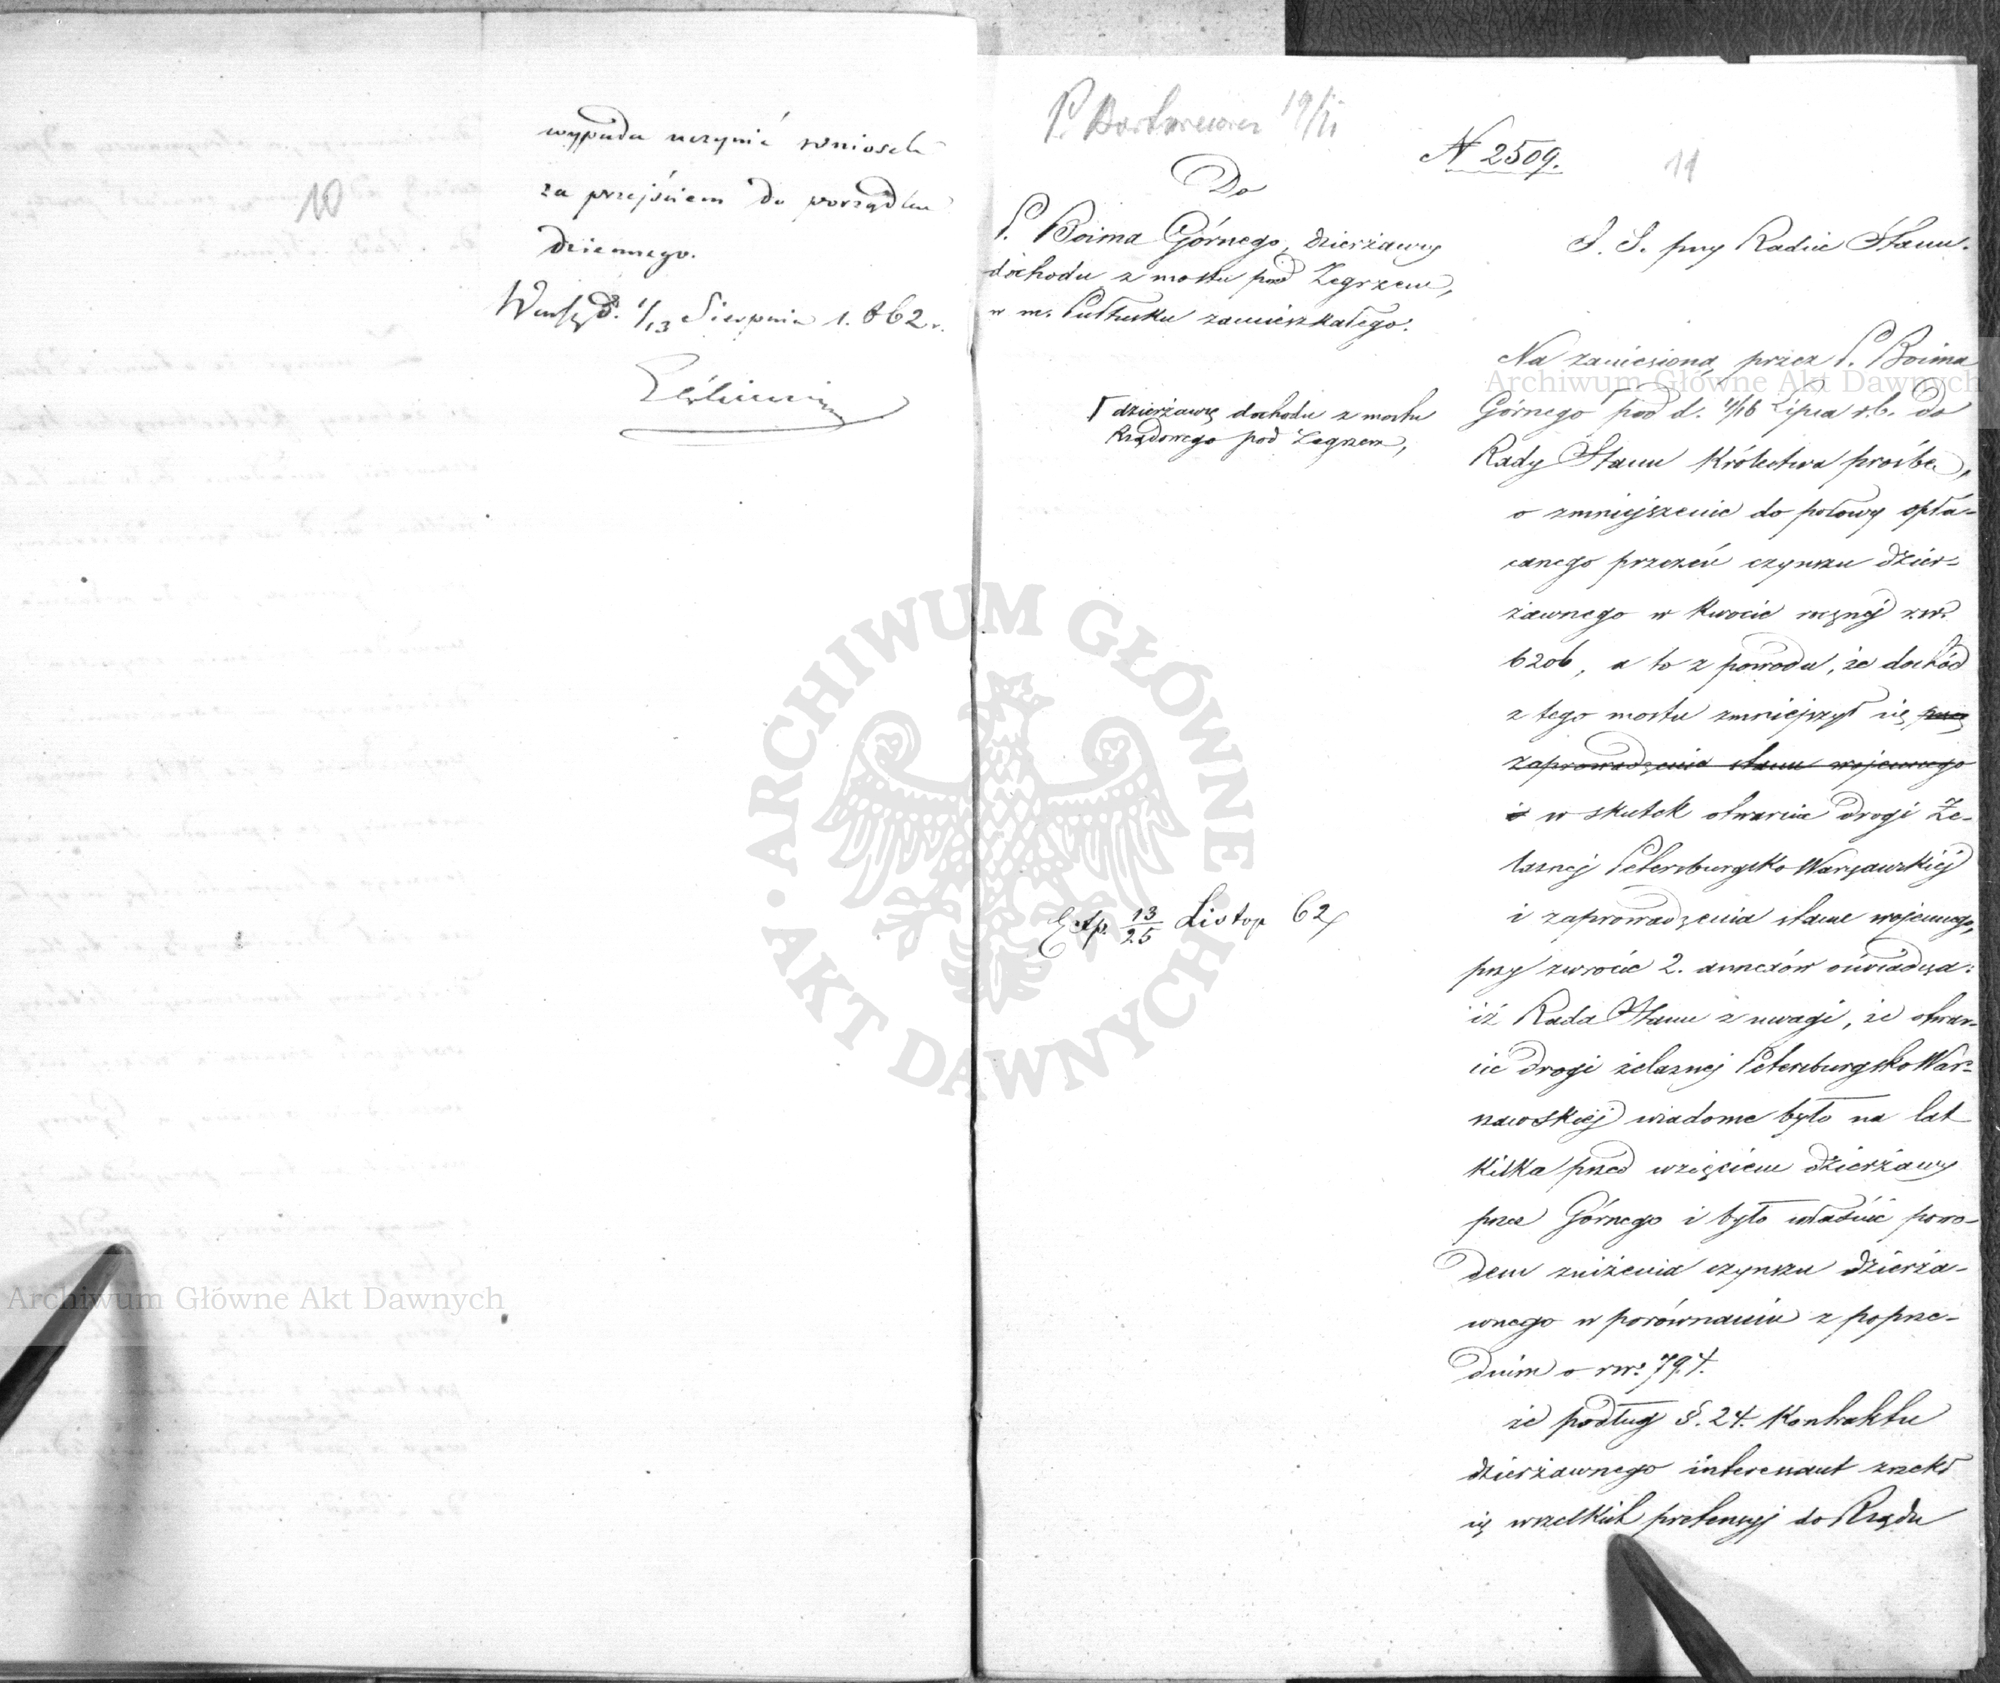 10
wypada uczynić wniosek
za przejściem do porządku
dziennego.
1/13 Sierpnia 1862 r.
P. 19/11
N 2509.
11
Do
P. Boima Górnego, dzierżawcy
dochodu z mostu pod Zegrzem,
w m. Pułtusku zamieszkałego.
S. S. przy Radzie Stanu.
Na zaniesioną przez P. Boima
Górnego pod d. 4/16 Lipca r.b. do
dzierżawę dochodu z mostu
Rządowego pod Zegrzem,
Rady Stanu Królestwa prośbę,
o zmniejszenie do połowy opła-
canego przezeń czynszu dzier-
żawnego w kwocie rocznej rsr.
6206, a to z powodu, że dochód
z tego mostu zmniejszył się przez
zaprowadzenia stanu wojennego
i w skutek otwarcia drogi Że-
laznej Petersburgsko Warszawskiej
i zaprowadzenia stanu wojennego,
przy zwrocie 2. annexów oświadcza:
iż Rada Stanu z uwagi, że otwar-
cie drogi żelaznej Petersburgsko War-
szawskiej wiadome było na lat
kilka przed wzięciem dzierżawy
przez Górnego i było właśnie powo-
dem zniżenia czynszu dzierża-
wnego w porównaniu z poprze-
dnim o rsr. 794.
że podług §. 24. Kontraktu
dzierżawnego interesant zrzekł
się wszelkich pretensyj do Rządu
Exp. 13/25 Listop 62
Archiwum Główne Akt Dawnych
Archiwum Główne Akt Dawnych
ARCHIWUM GŁÓWNE · AKT DAWNYCH ·